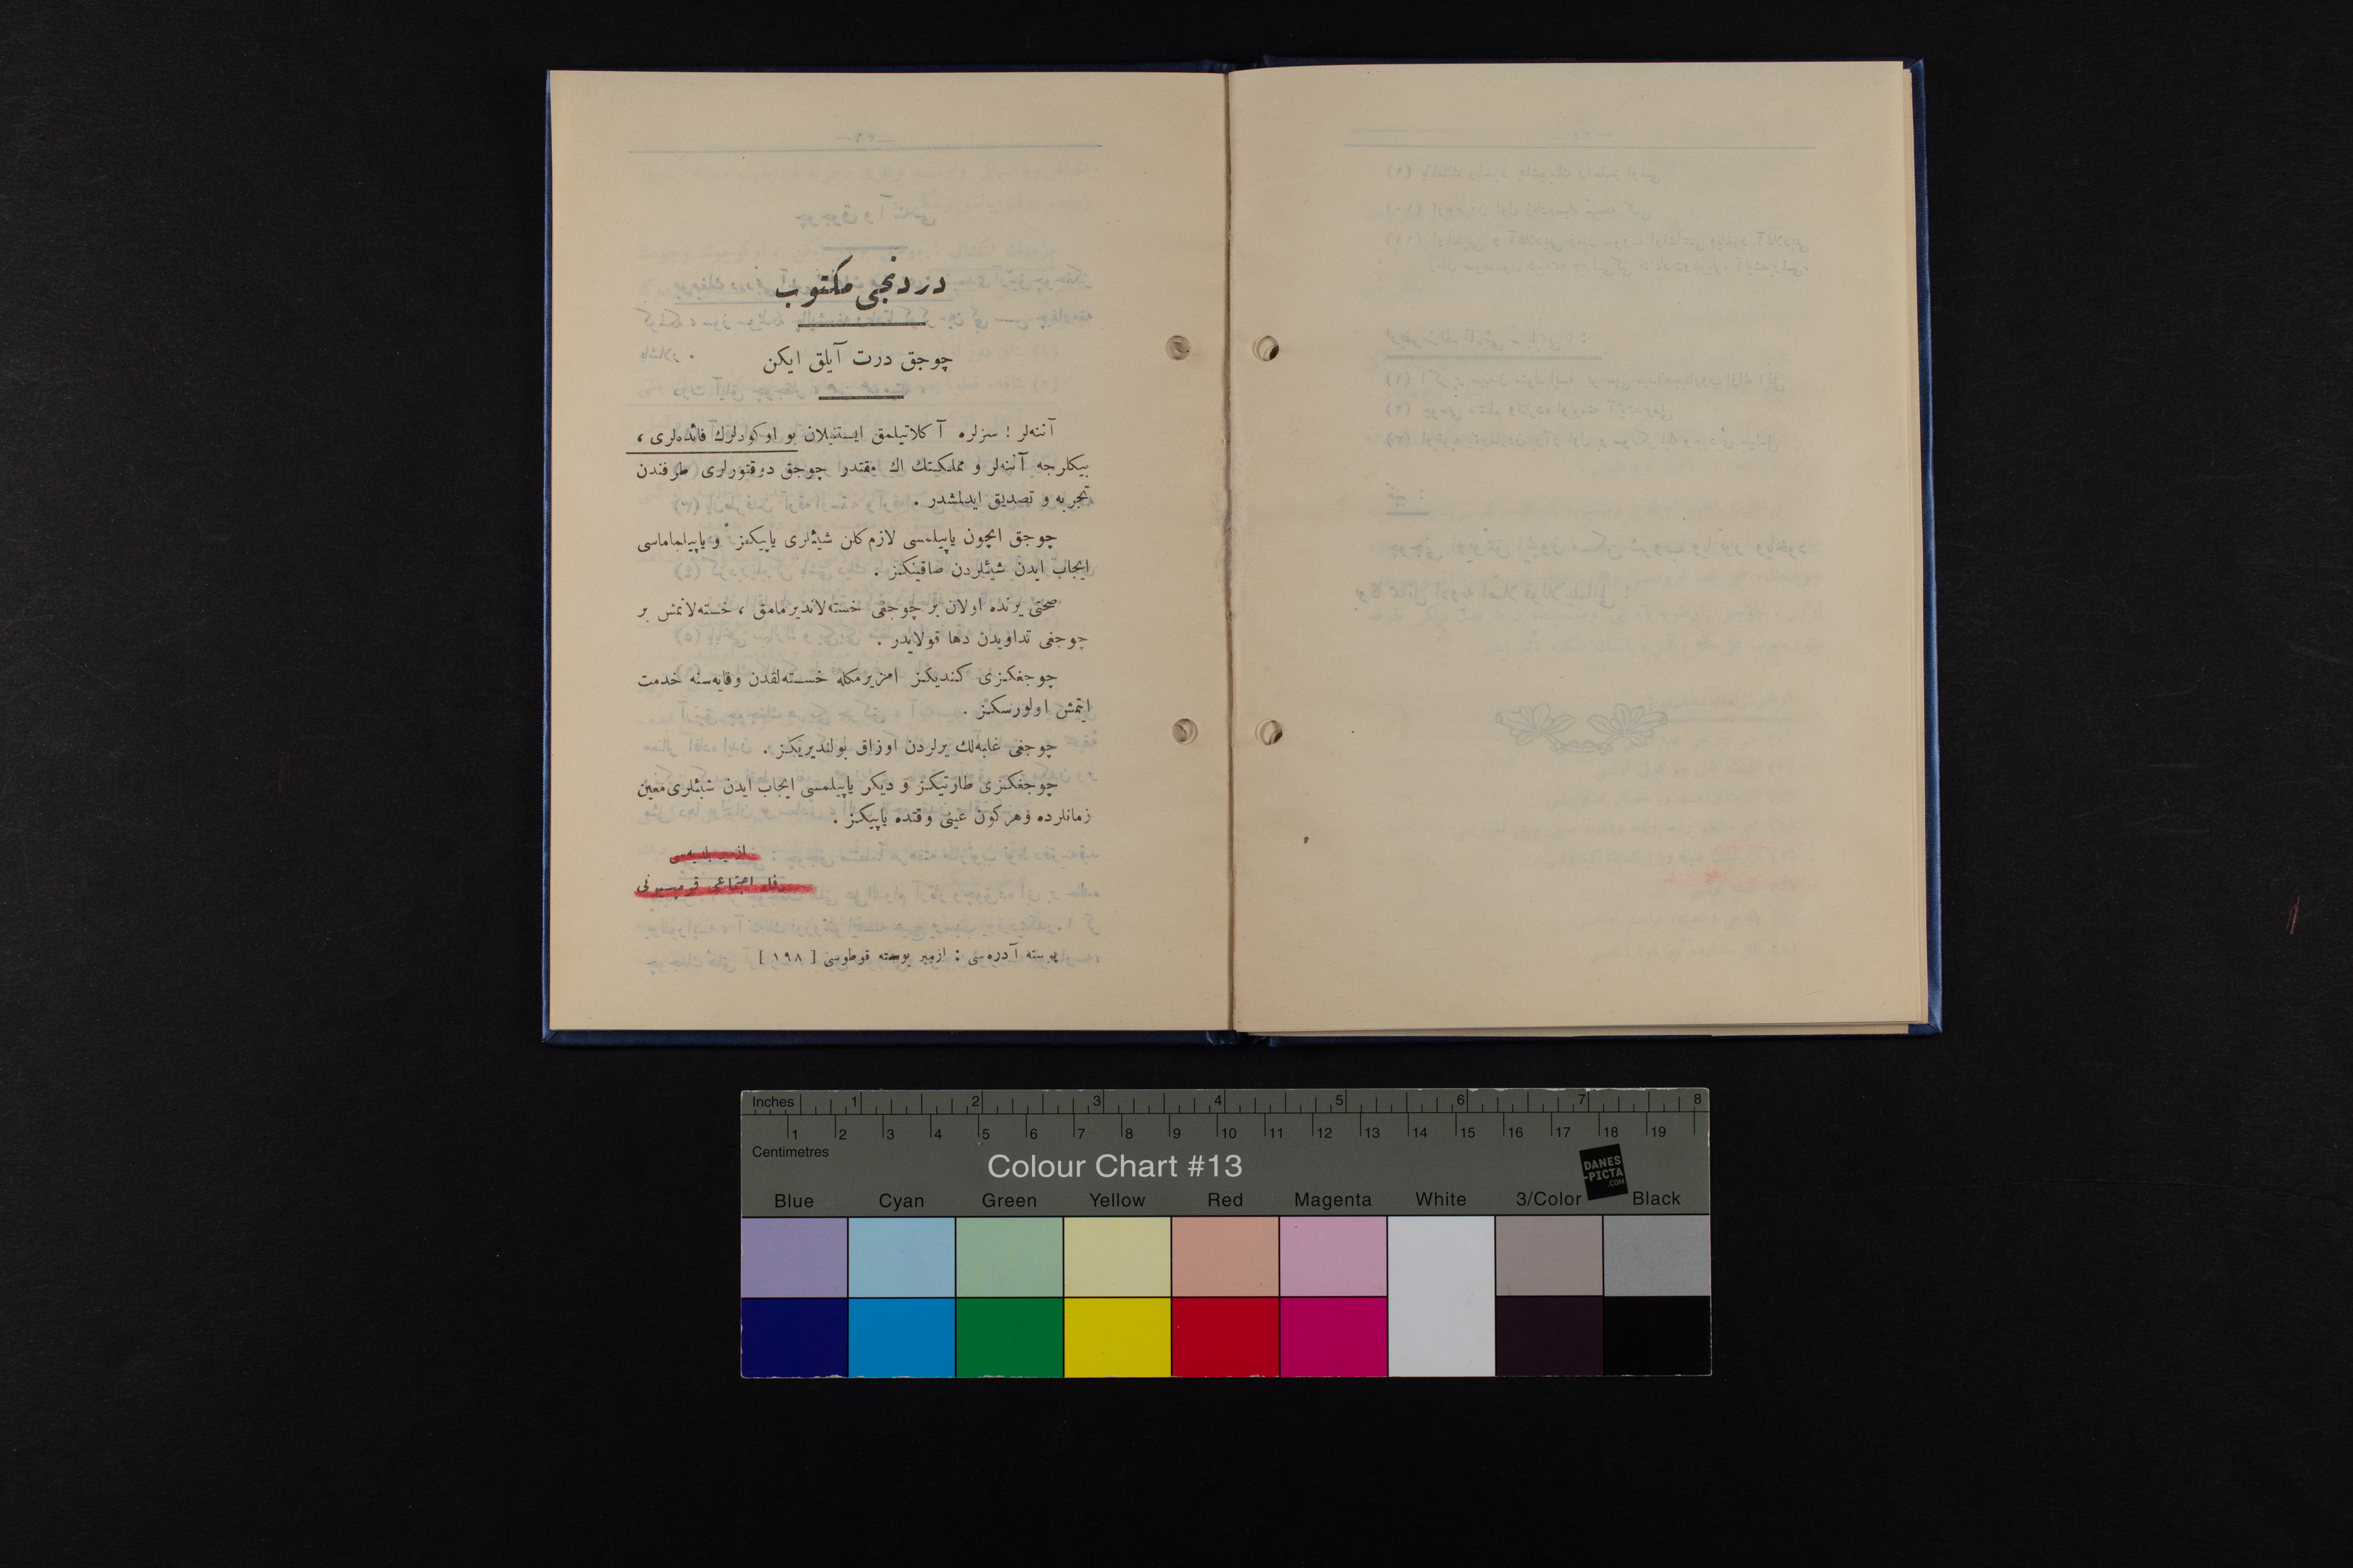 دردنجی مكتوب
چوجق درت آیلق ایكن
آننه‌لر ! سزلره آكلاتیلمق ایستنیلان بو اوكودلرك فائده‌لری ،
بیكلرجه آننه‌لر و مملكتك اك مقتدر چوجق دوقتورلری طرفندن
تجربه و تصدیق ایدلمشدر .
چوجق ایچون یاپیلمسی لازم كلن شیئلری یاپیكز و یاپیلماماسی
ایجاب ایدن شیئلردن صاقینكز .
صحتی یرنده اولان بر چوجغی خسته‌لاندیرمامق ، خسته‌لانمش بر
چوجغی تداویدن دها قولایدر .
چوجغكزی كندیكز امزیرمكله خسته‌لقدن وقایه‌سنه خدمت
ایتمش اولورسكز .
چوجغی غلبه‌لك یرلردن اوزاق بولندیریكز .
چوجغكزی طارتیكز و دیكر یاپیلمسی ایجاب ایدن شیئلری معین
زمانلرده و هركون عینی وقتده یاپیكز .
ازمیر بلدیه‌سی
رفاه اجتماعی قومیسیونی
پوسته آدره‌سی : ازمیر پوسته قوطوسی [ ١٩٨ ]
Inches 1 2 3 4 5 6 7 8
1 2 3 4 5 6 7 8 9 10 11 12 13 14 15 16 17 18 19
Centimetres
Colour Chart #13
DANES
-PICTA
.COM
Blue Cyan Green Yellow Red Magenta White 3/Color Black